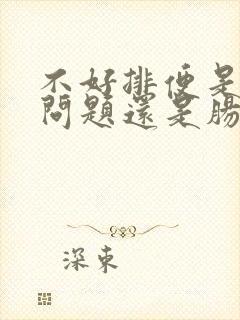 不好排便是
問題還是腸
深東